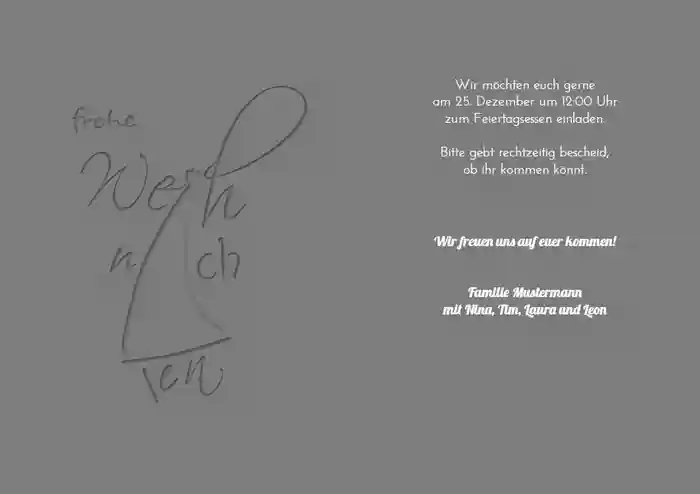 frohe
Weih
n ch
ten
Wir möchten euch gerne
am 25. Dezember um 12:00 Uhr
zum Feiertagsessen einladen.
Bitte gebt rechtzeitig bescheid,
ob ihr kommen könnt.
Wir freuen uns auf euer kommen!
Familie Mustermann
mit Nina, Tim, Laura und Leon